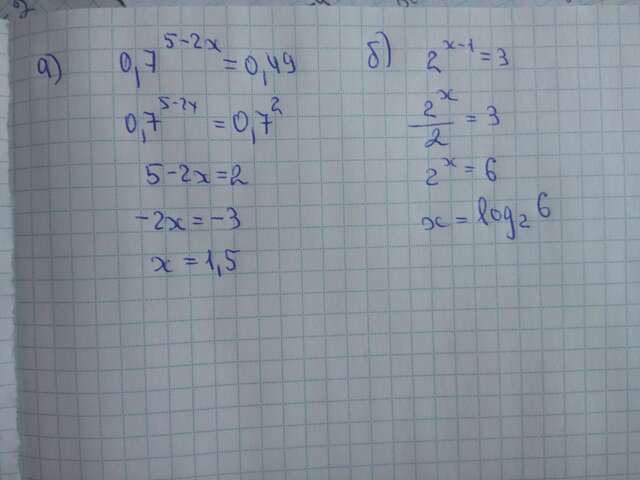 а) 0,7^(5-2x) = 0,49
0,7^(5-2x) = 0,7^2
5-2x=2
-2x=-3
x=1,5
б) 2^(x-1) = 3
2^x/2 = 3
2^x = 6
x = log_2 6